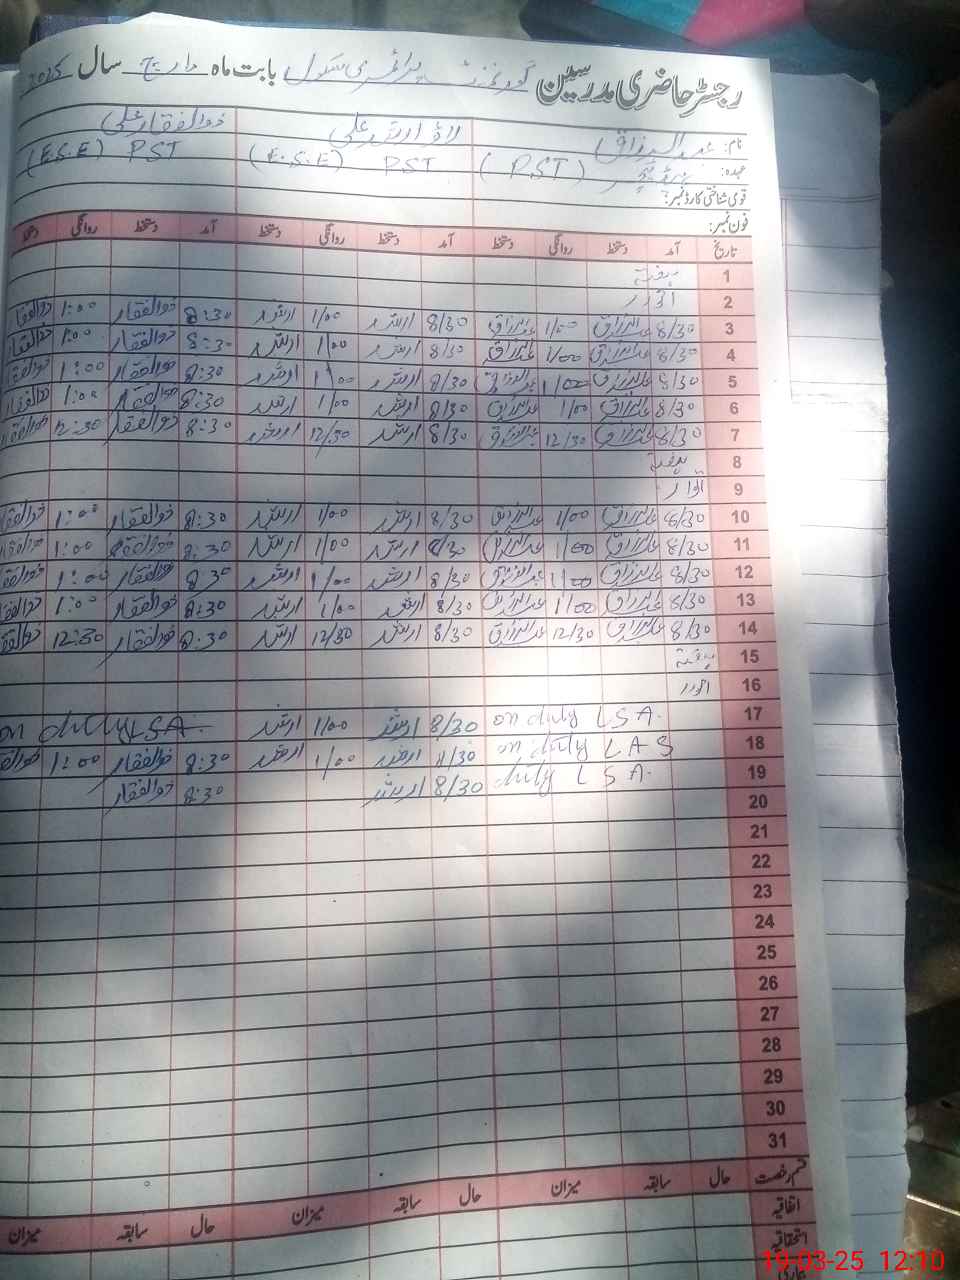 رجسٹر حاضری مدرسین گورنمنٹ پرائمری سکول بابت ماہ مارچ سال 2025
نام: عبدالرزاق ارشد علی ذوالفقار علی
عہدہ: (PST) PST (E.S.E) PST (E.S.E)
قومی شناختی کارڈ نمبر:
فون نمبر:
تاریخ آمد دستخط روانگی دستخط آمد دستخط روانگی دستخط آمد دستخط روانگی دستخط
1 ہفتہ
2 اتوار
3 8/30 عبدالرزاق 1/00 عبدالرزاق 8/30 ارشد 1/00 ارشد 8:30 ذوالفقار 1:00 ذوالفقار
4 8/30 عبدالرزاق 1/00 عبدالرزاق 8/30 ارشد 1/00 ارشد 8:30 ذوالفقار 1:00 ذوالفقار
5 8/30 عبدالرزاق 1/00 عبدالرزاق 8/30 ارشد 1/00 ارشد 8:30 ذوالفقار 1:00 ذوالفقار
6 8/30 عبدالرزاق 1/00 عبدالرزاق 8/30 ارشد 1/00 ارشد 8:30 ذوالفقار 1:00 ذوالفقار
7 8/30 عبدالرزاق 12/30 عبدالرزاق 8/30 ارشد 12/30 ارشد 8:30 ذوالفقار 12:30 ذوالفقار
8 ہفتہ
9 اتوار
10 8/30 عبدالرزاق 1/00 عبدالرزاق 8/30 ارشد 1/00 ارشد 8:30 ذوالفقار 1:00 ذوالفقار
11 8/30 عبدالرزاق 1/00 عبدالرزاق 8/30 ارشد 1/00 ارشد 8:30 ذوالفقار 1:00 ذوالفقار
12 8/30 عبدالرزاق 1/00 عبدالرزاق 8/30 ارشد 1/00 ارشد 8:30 ذوالفقار 1:00 ذوالفقار
13 8/30 عبدالرزاق 1/00 عبدالرزاق 8/30 ارشد 1/00 ارشد 8:30 ذوالفقار 1:00 ذوالفقار
14 8/30 عبدالرزاق 12/30 عبدالرزاق 8/30 ارشد 12/30 ارشد 8:30 ذوالفقار 12:30 ذوالفقار
15 ہفتہ
16 اتوار
17 on duty LSA. 8/30 ارشد 1/00 ارشد on duty LSA.
18 on duty LAS 8/30 ارشد 1/00 ارشد 8:30 ذوالفقار 1:00 ذوالفقار
19 duty LSA. 8/30 ارشد 8:30 ذوالفقار
20
21
22
23
24
25
26
27
28
29
30
31
قسم رخصت حال سابقہ میزان حال سابقہ میزان حال سابقہ میزان
اتفاقیہ
استحقاقیہ
19-03-25 12:10